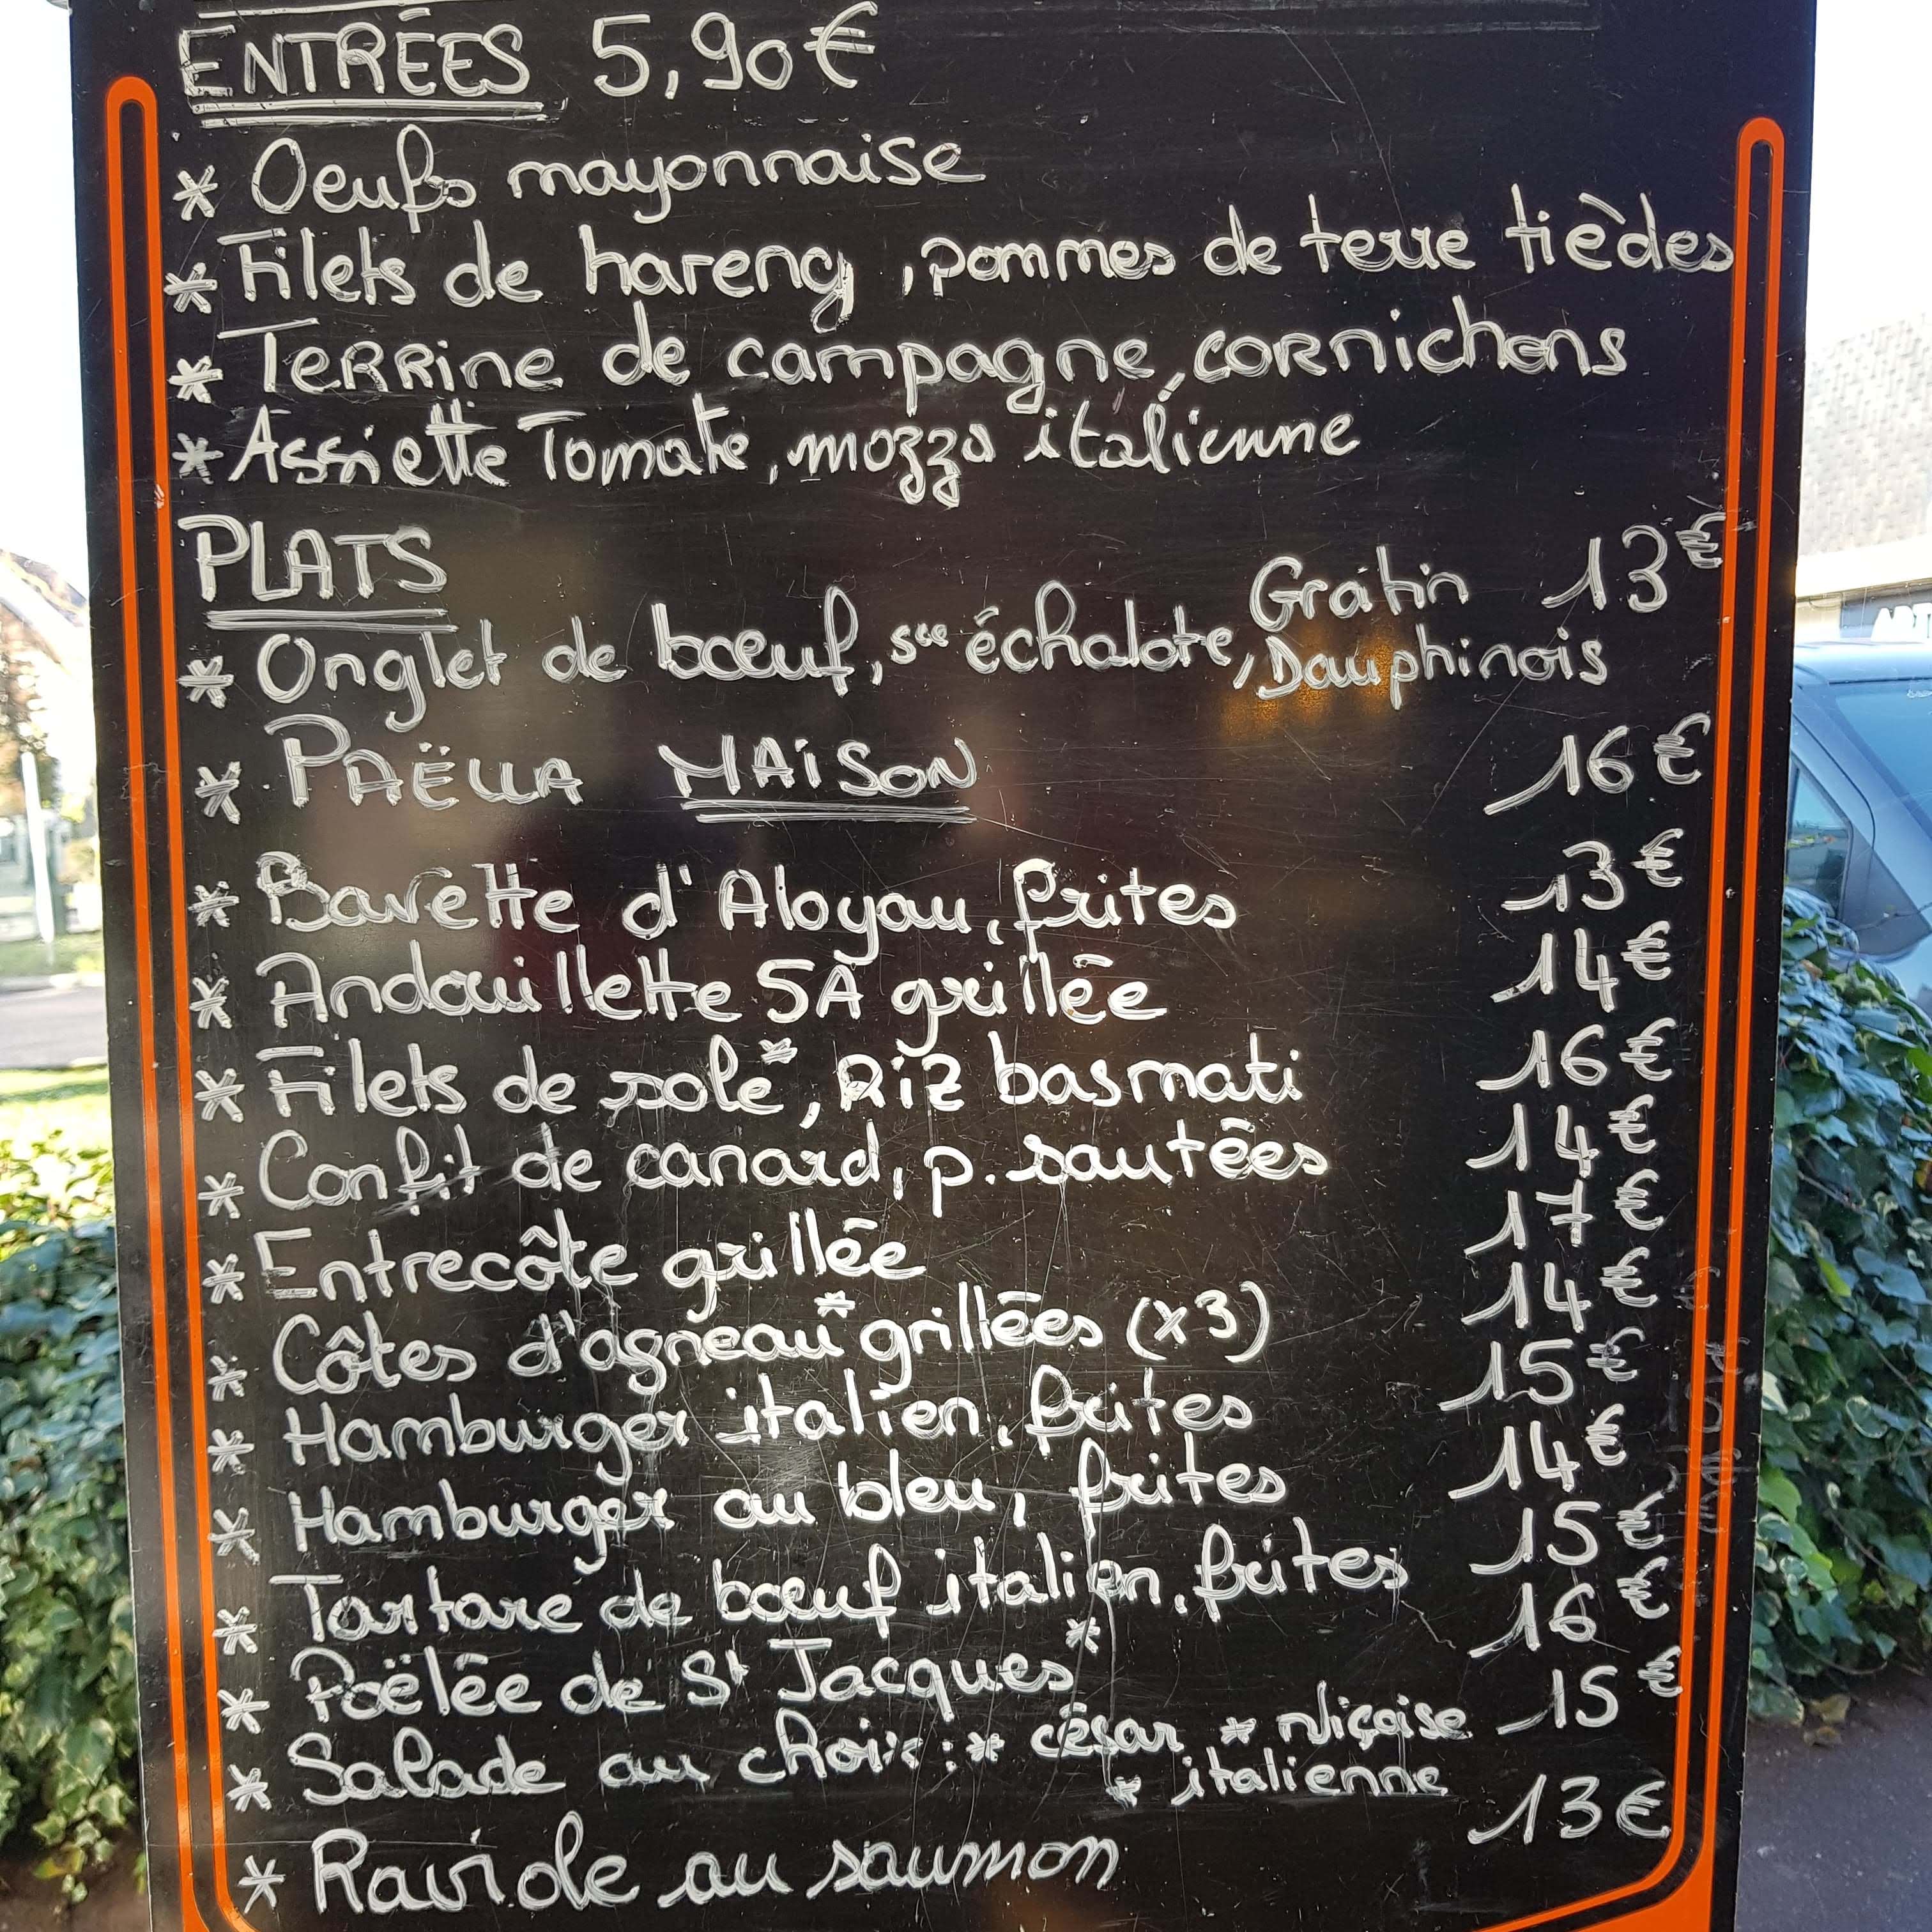 ENTRÉES 5,90€
* Oeufs mayonnaise
* Filets de hareng, pommes de terre tièdes
* Terrine de campagne, cornichons
* Assiette Tomate, mozza italienne
PLATS
* Onglet de bœuf, sce échalote, Gratin Dauphinois 13€
* PAËLLA MAISON 16€
* Bavette d'Aloyau, frites 13€
* Andouillette 5A grillée 14€
* Filets de sole*, Riz basmati 16€
* Confit de canard, p. sautées 14€
* Entrecôte grillée 17€
* Côtes d'agneau* grillées (x3) 14€
* Hamburger italien, frites 15€
* Hamburger au bleu, frites 14€
* Tartare de bœuf italien, frites 15€
* Poëlée de St Jacques* 16€
* Salade au choix : * césar * Niçoise 15€
* italienne
* Raviole au saumon 13€